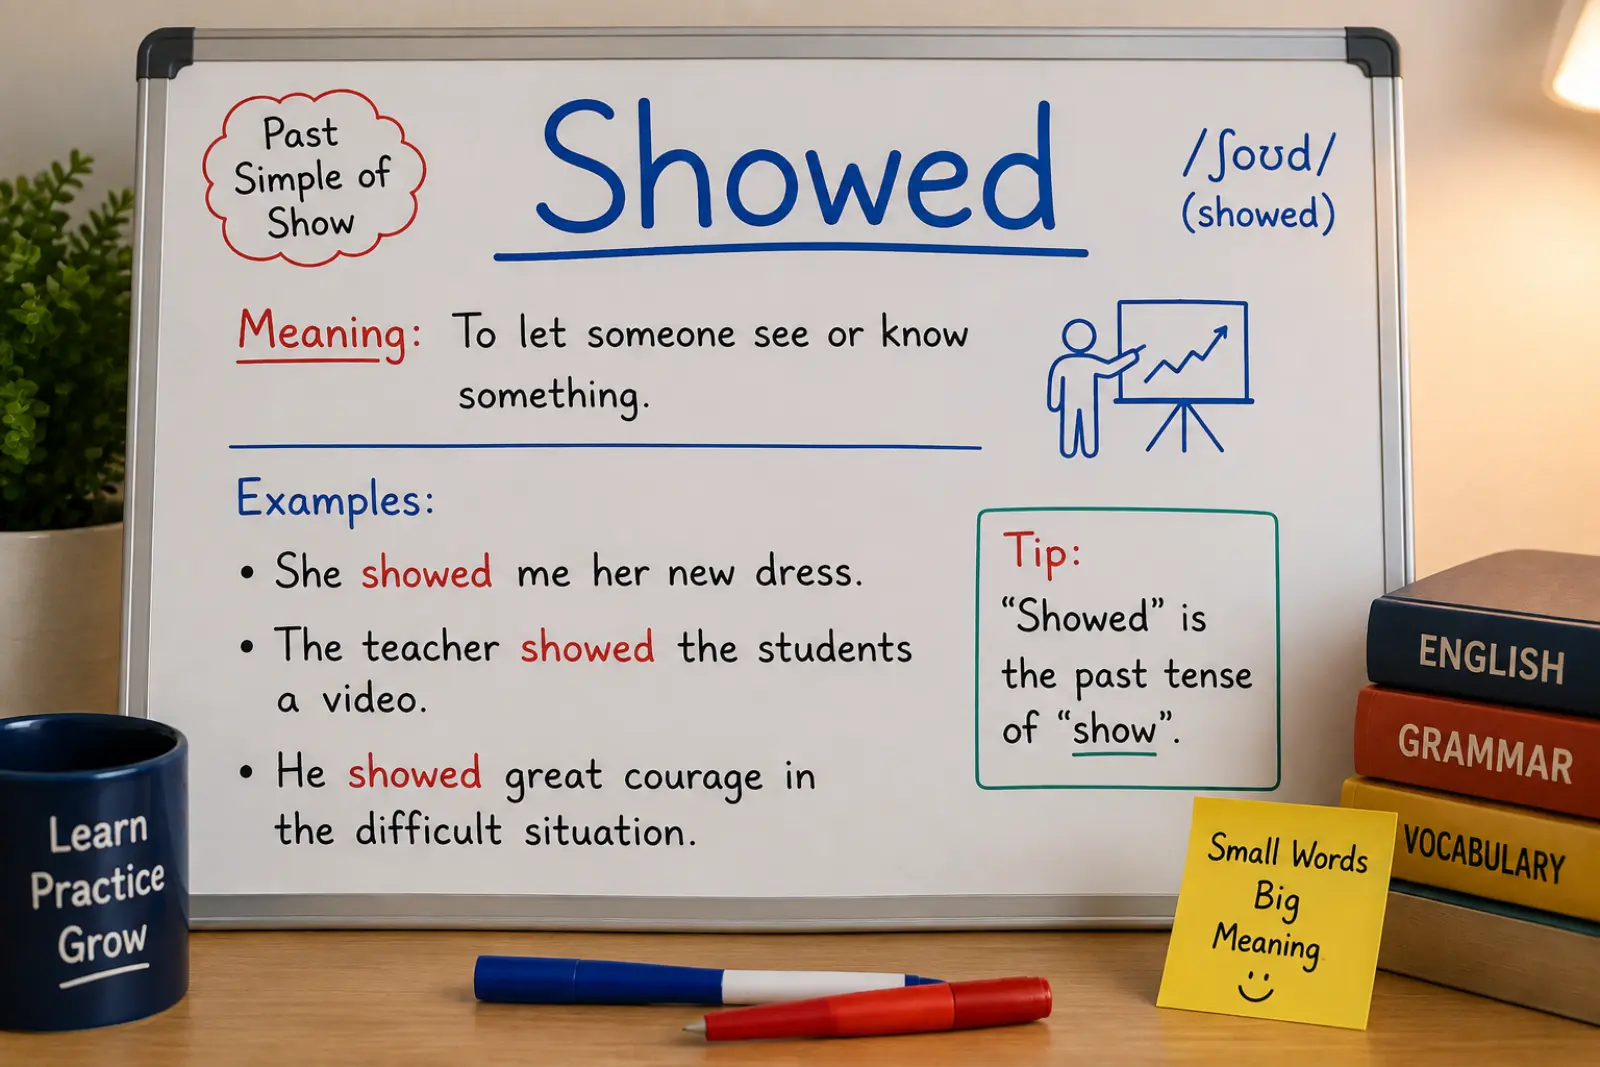 Past
Simple of
Show
Showed
/ʃoʊd/
(showed)
Meaning: To let someone see or know
something.
Examples:
• She showed me her new dress.
• The teacher showed the students
a video.
• He showed great courage in
the difficult situation.
Tip:
“Showed” is
the past tense
of “show”.
Learn
Practice
Grow
ENGLISH
GRAMMAR
VOCABULARY
Small Words
Big
Meaning